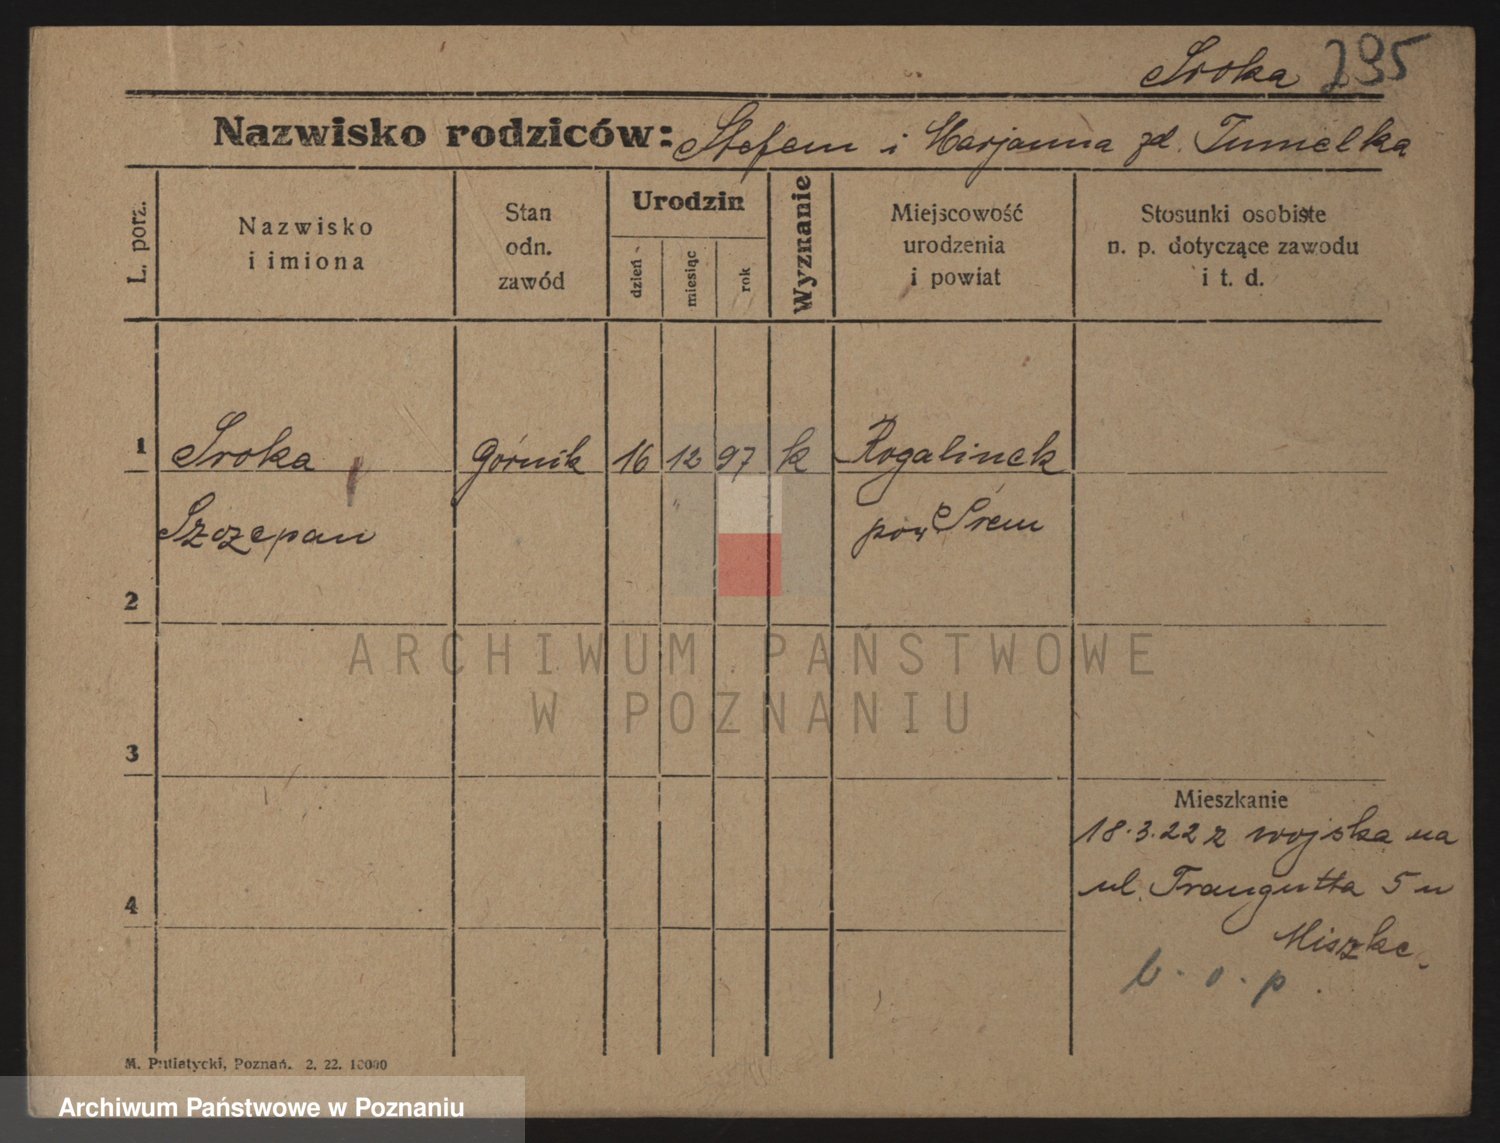 Sroka 295
Nazwisko rodziców: Stefan i Marjanna zd. Tumelka
L. porz.
Nazwisko
i imiona
Stan
odn.
zawód
Urodzin
dzień
miesiąc
rok
Wyznanie
Miejscowość
urodzenia
i powiat
Stosunki osobiste
n. p. dotyczące zawodu
i t. d.
1 Sroka Górnik 16 12 97 k Rogalinek
Szczepan pow Śrem
2
3
4
Mieszkanie
18.3.22 z wojska na
ul. Traugutta 5 u
b. o. p.
M. Putiatycki, Poznań. 2. 22. 10000
ARCHIWUM PAŃSTWOWE
W POZNANIU
Archiwum Państwowe w Poznaniu